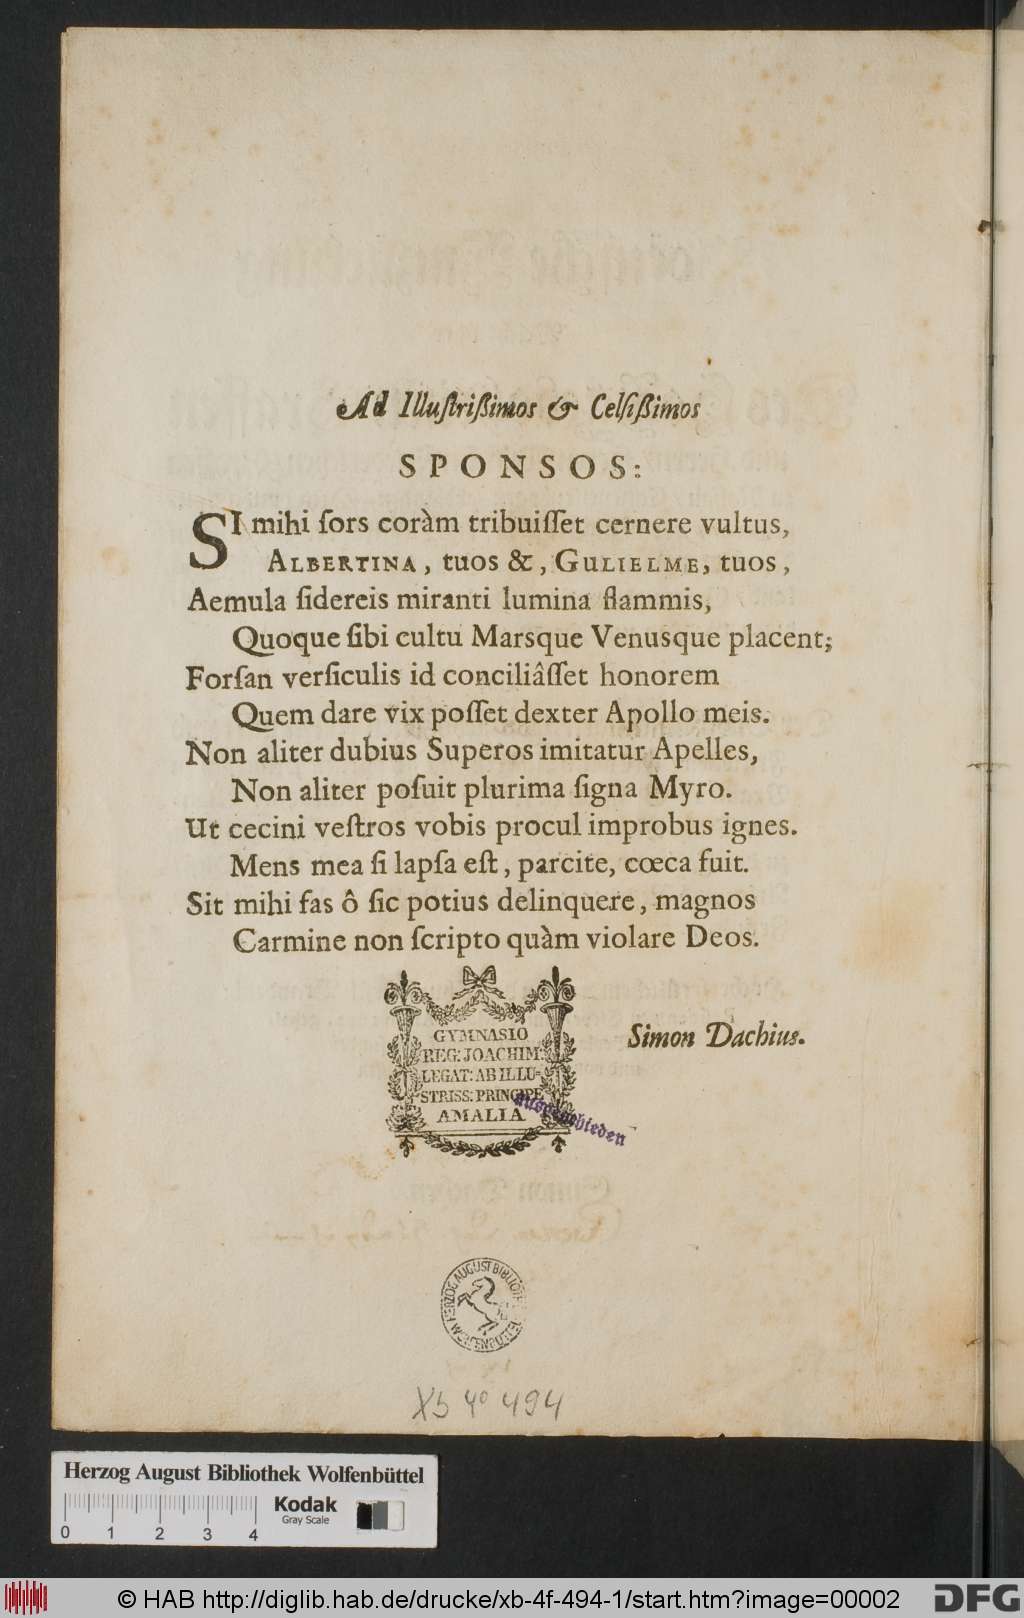 Ad Illuſtrißimos & Celſißimos
SPONSOS:
SI mihi ſors coràm tribuiſſet cernere vultus,
ALBERTINA, tuos &, GULIELME, tuos,
Aemula ſidereis miranti lumina flammis,
Quoque ſibi cultu Marsque Venusque placent;
Forſan verſiculis id conciliâſſet honorem
Quem dare vix poſſet dexter Apollo meis.
Non aliter dubius Superos imitatur Apelles,
Non aliter poſuit plurima ſigna Myro.
Ut cecini veſtros vobis procul improbus ignes.
Mens mea ſi lapſa eſt, parcite, cœca fuit.
Sit mihi fas ô ſic potius delinquere, magnos
Carmine non ſcripto quàm violare Deos.
Simon Dachius.
GYMNASIO
REG: JOACHIM:
LEGAT: AB ILLU-
STRISS: PRINCIPE
AMALIA
ausgeschieden
HERZOG AUGUST BIBLIOTHEK WOLFENBÜTTEL
Xb 4° 494
Herzog August Bibliothek Wolfenbüttel
Kodak
Gray Scale
0 1 2 3 4
© HAB http://diglib.hab.de/drucke/xb-4f-494-1/start.htm?image=00002
DFG